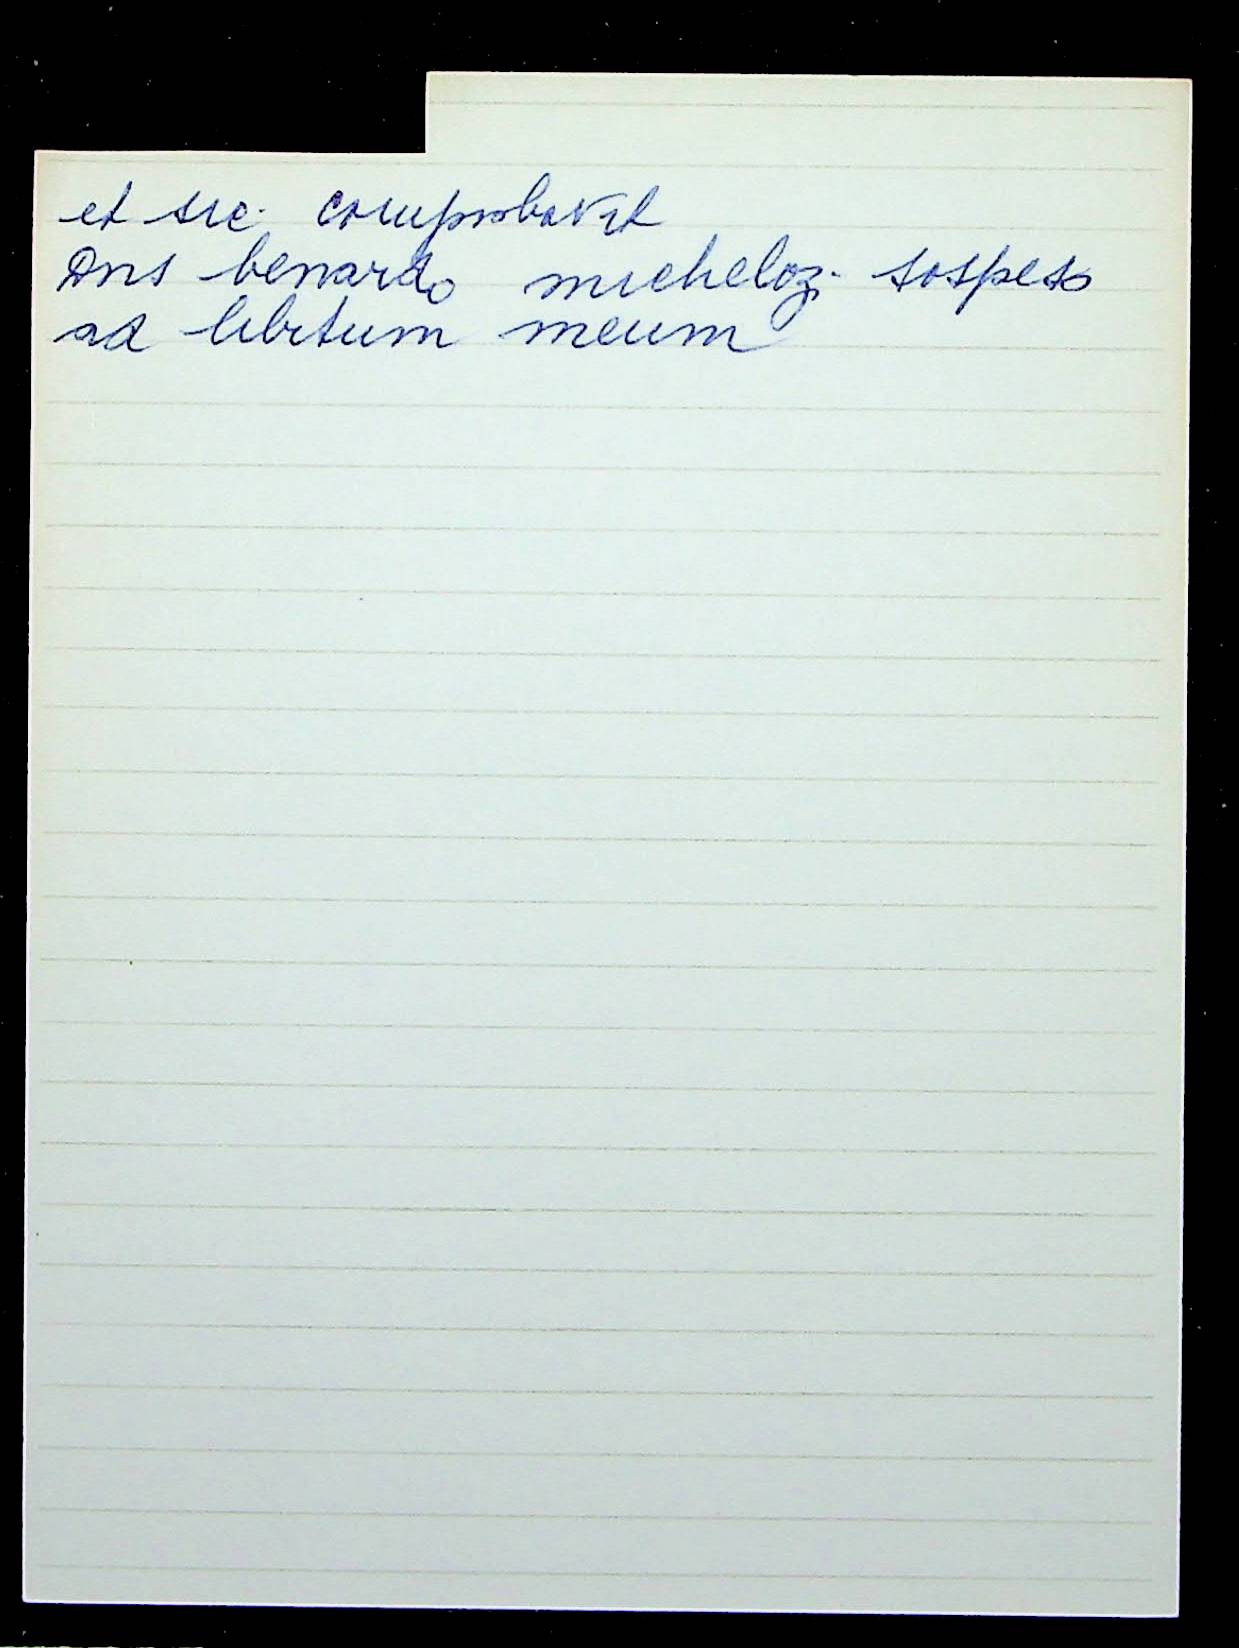 et sic comprobavit
Dns benardo micheloz. sospeso
ad libitum meum